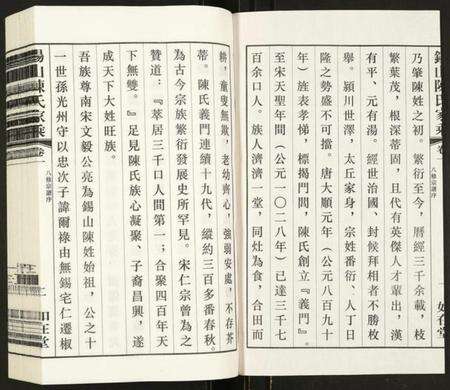 錫山陳氏家乘
卷一
八修宗譜序
乃肇陳姓之初。繁衍至今，曆經三千余載，枝
繁葉茂，根深蒂固，且代有英傑人才輩出，漢
有平、元有湯。經世治國、封候拜相者不勝枚
舉。潁川世澤，太丘家身，宗姓番衍、人丁日
隆之勢盛不可擋。唐大順元年（公元八百九十
年）旌表孝悌，標揭門閭，陳氏創立『義門』
至宋天聖年間（公元一〇二八年）已達三千七
百余口人。族人濟濟一堂，同灶為食，合田而
耕，童叟無欺，老幼齊心，強弱安處，不存芥
蒂。陳氏義門連續十九代，縱約三百多番春秋。
為古今宗族繁衍發展史所罕見。宋仁宗曾為之
贊道：『萃居三千口人間第一；合聚四百年天
下無雙。』足見陳氏族心凝聚、子裔昌興，遂
成天下大姓旺族。
吾族尊南宋文毅公亮為錫山陳姓始祖，公之十
一世孫光州守以忠次子諱爾祿由無錫宅仁遷椒
錫山陳氏家乘
卷一
八修宗譜序
二
如在堂